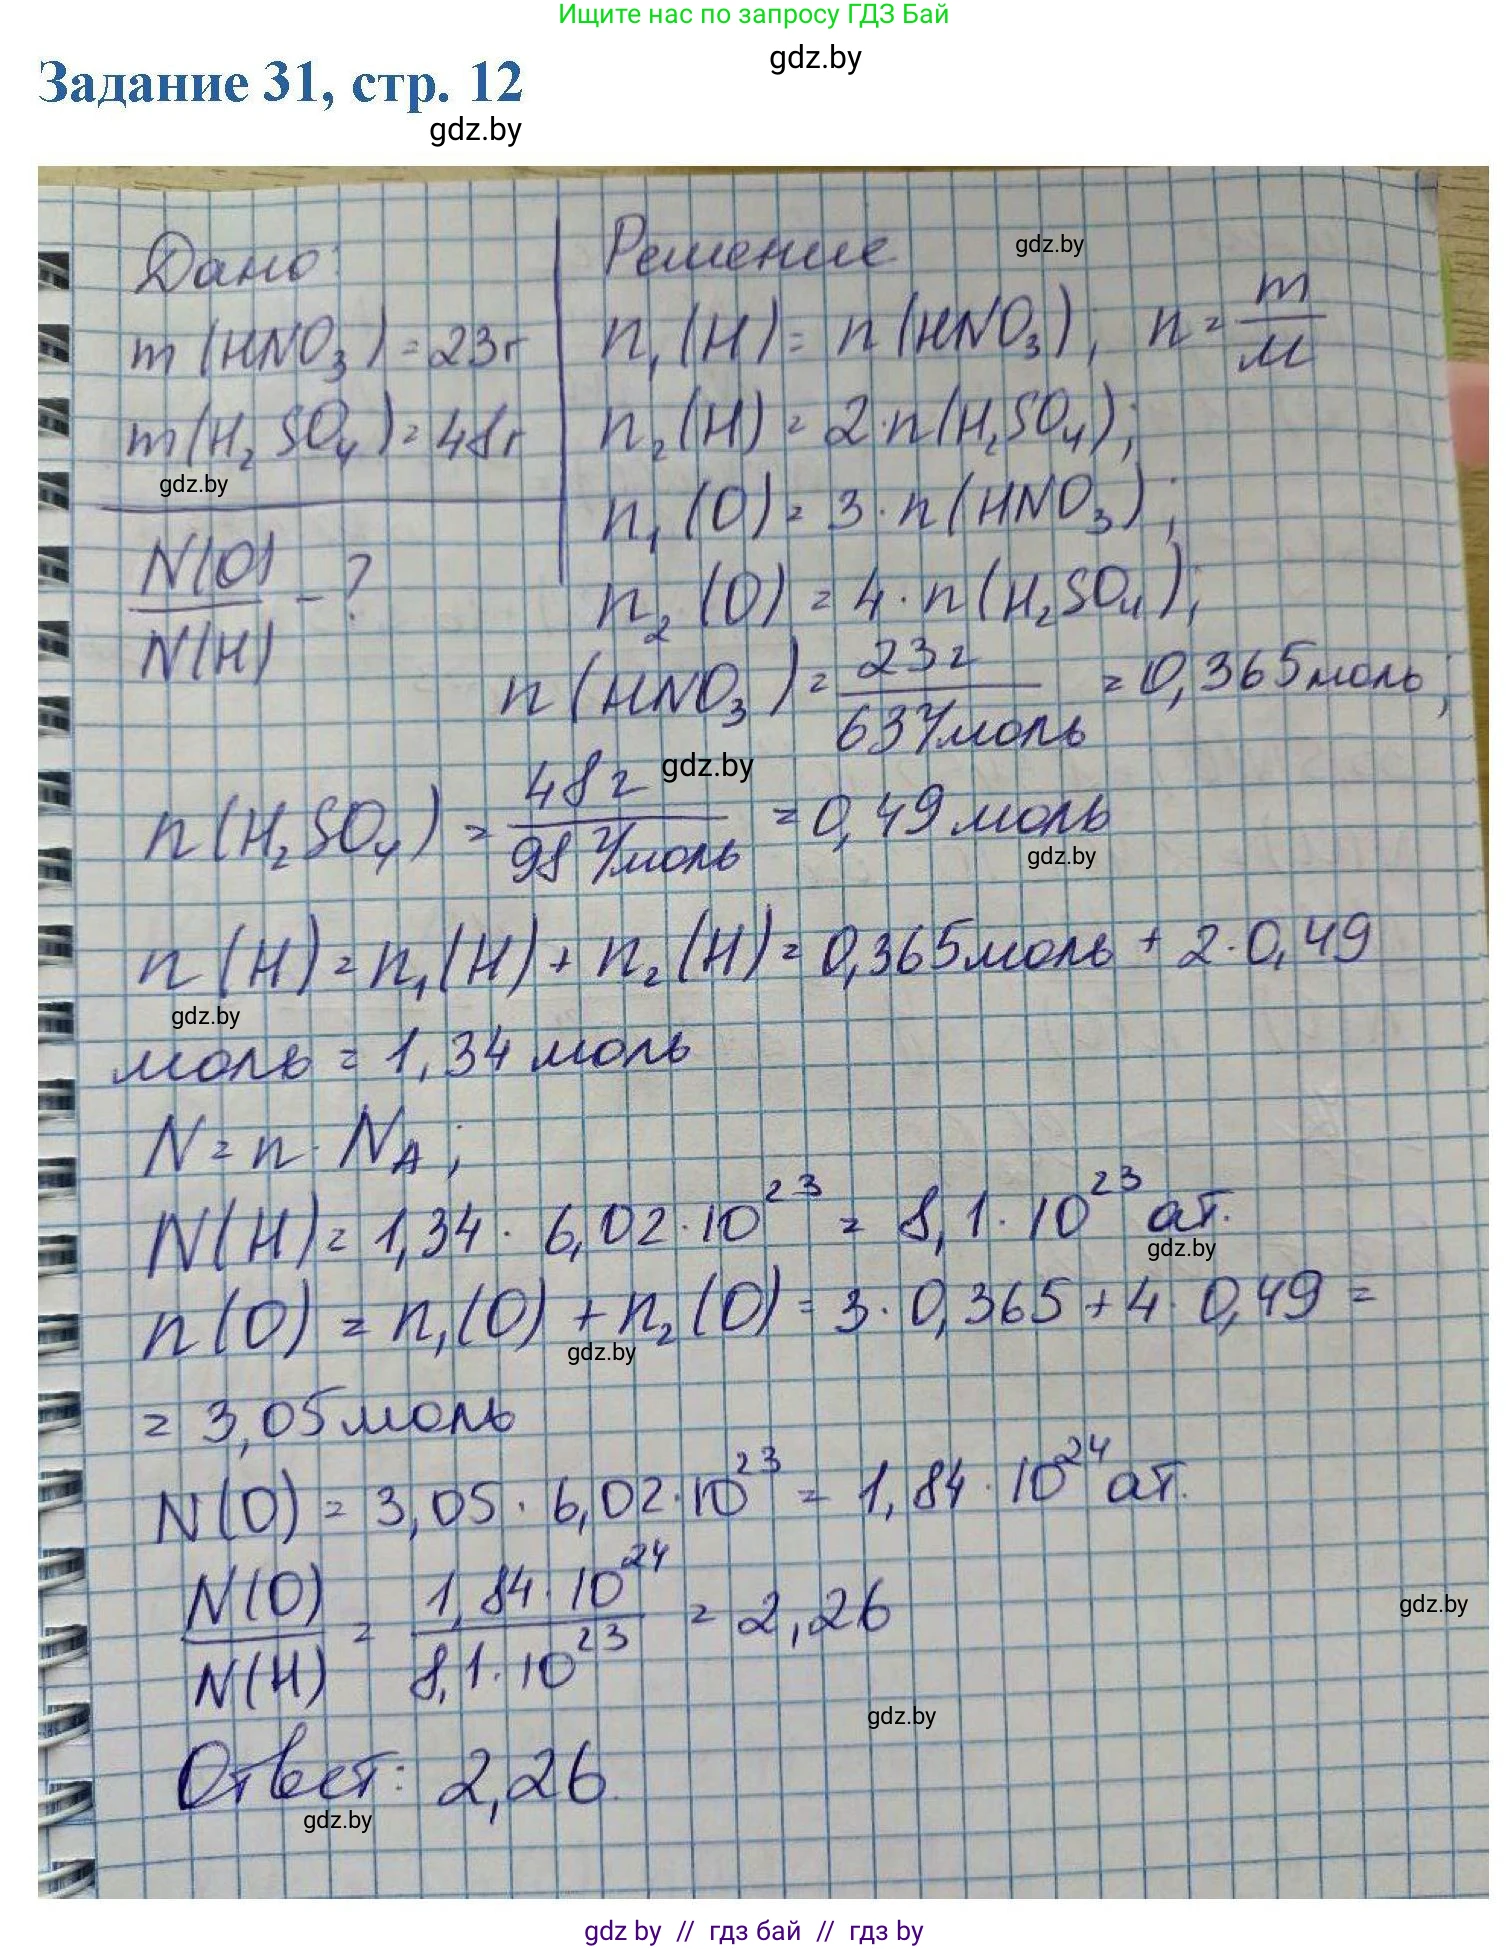 Ищите нас по запросу ГДЗ Бай
gdz.by
Задание 31, стр. 12
gdz.by
Дано:
m(HNO₃) = 23г
m(H₂SO₄) = 48г
gdz.by
N(O)/N(H) - ?
Решение
gdz.by
n₁(H) = n(HNO₃); n = m/M
n₂(H) = 2·n(H₂SO₄);
n₁(O) = 3·n(HNO₃);
n₂(O) = 4·n(H₂SO₄);
n(HNO₃) = 23г/63г/моль = 0,365моль;
gdz.by
n(H₂SO₄) = 48г/98г/моль = 0,49 моль
gdz.by
n(H) = n₁(H) + n₂(H) = 0,365моль + 2·0,49
gdz.by
моль = 1,34 моль
N = n·N_A;
N(H) = 1,34 · 6,02·10²³ = 8,1·10²³ ат.
gdz.by
n(O) = n₁(O) + n₂(O) = 3·0,365 + 4·0,49 =
gdz.by
= 3,05моль
N(O) = 3,05 · 6,02·10²³ = 1,84·10²⁴ ат.
N(O)/N(H) = 1,84·10²⁴/8,1·10²³ = 2,26
gdz.by
gdz.by
Ответ: 2,26.
gdz.by
gdz by // гдз бай // гдз by